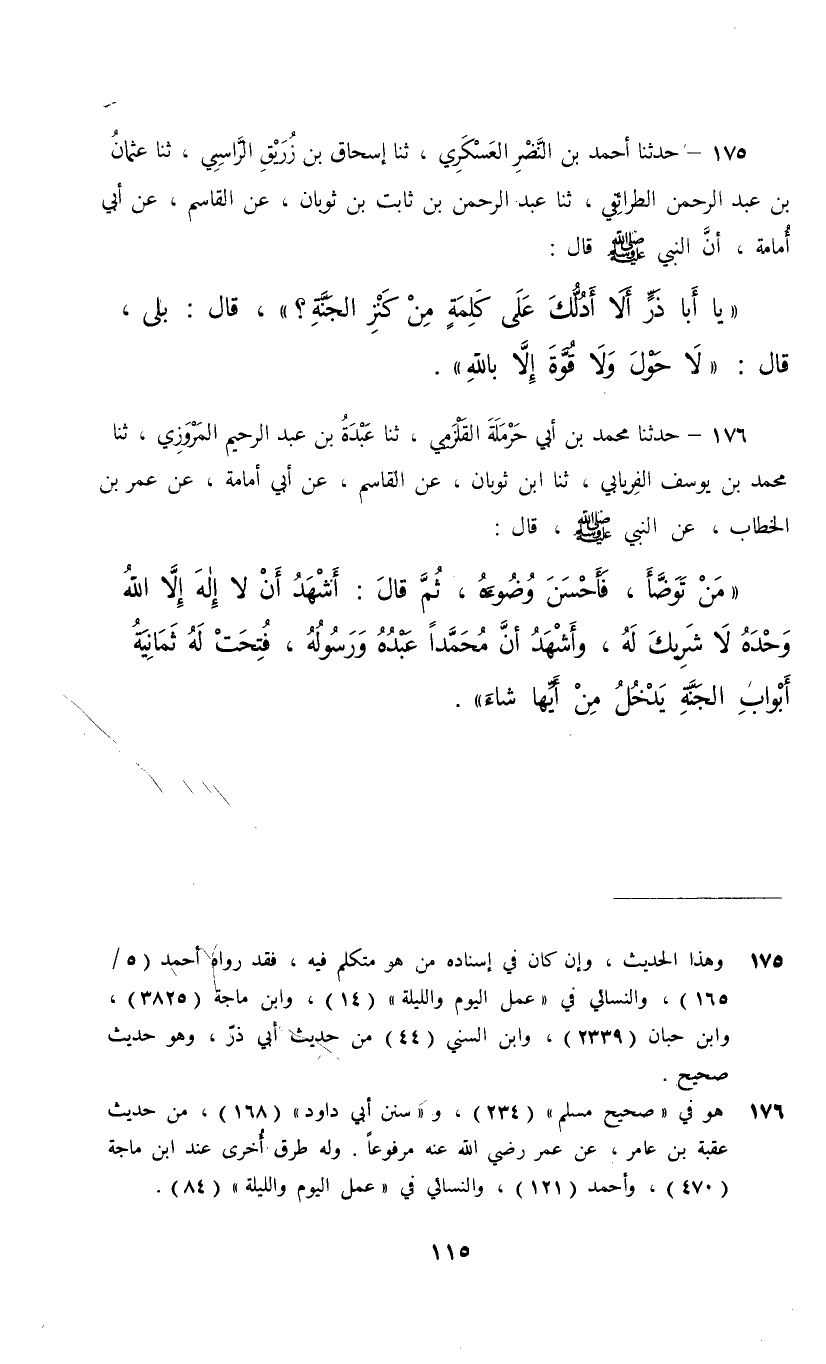 ١٧٥ – حدثنا أحمد بن النَّضْرِ العَسْكَرِي ، ثنا إسحاق بن زُرَيْقِ الرَّاسِبِي ، ثنا عثمانُ
بن عبد الرحمن الطرائِفِي ، ثنا عبد الرحمن بن ثابت بن ثوبان ، عن القاسم ، عن أبي
أُمامة ، أنَّ النبي ﷺ قال :
« يا أَبا ذَرٍّ أَلَا أَدُلُّكَ عَلَى كَلِمَةٍ مِنْ كَنْزِ الجَنَّةِ ؟ » ، قال : بلى ،
قال : « لَا حَوْلَ وَلَا قُوَّةَ إِلَّا باللهِ » .
١٧٦ – حدثنا محمد بن أبي حَرْمَلَةَ القَلْزمِي ، ثنا عَبْدَةُ بن عبد الرحيم المَرْوَزِي ، ثنا
محمد بن يوسف الفِريابي ، ثنا ابن ثوبان ، عن القاسم ، عن أبي أمامة ، عن عمر بن
الخطاب ، عن النبي ﷺ ، قال :
« مَنْ تَوَضَّأَ ، فَأَحْسَنَ وُضُوءَهُ ، ثُمَّ قالَ : أَشْهَدُ أَنْ لا إِلٰهَ إِلَّا اللهُ
وَحْدَهُ لَا شَرِيكَ لَهُ ، وأَشْهَدُ أنَّ مُحَمَّداً عَبْدُهُ وَرَسُولُهُ ، فُتِحَتْ لَهُ ثَمَانِيَةُ
أَبْوابِ الجَنَّةِ يَدْخُلُ مِنْ أَيِّها شاءَ » .
١٧٥ وهذا الحديث ، وإن كان في إسناده من هو متكلم فيه ، فقد رواه أحمد ( ٥ /
١٦٥ ) ، والنسائي في « عمل اليوم والليلة » ( ١٤ ) ، وابن ماجة ( ٣٨٢٥ ) ،
وابن حبان ( ٢٣٣٩ ) ، وابن السني ( ٤٤ ) من حديث أبي ذرّ ، وهو حديث
صحيح .
١٧٦ هو في « صحيح مسلم » ( ٢٣٤ ) ، و « سنن أبي داود » ( ١٦٨ ) ، من حديث
عقبة بن عامر ، عن عمر رضي الله عنه مرفوعاً . وله طرق أُخرى عند ابن ماجة
( ٤٧٠ ) ، وأحمد ( ١٢١ ) ، والنسائي في « عمل اليوم والليلة » ( ٨٤ ) .
١١٥